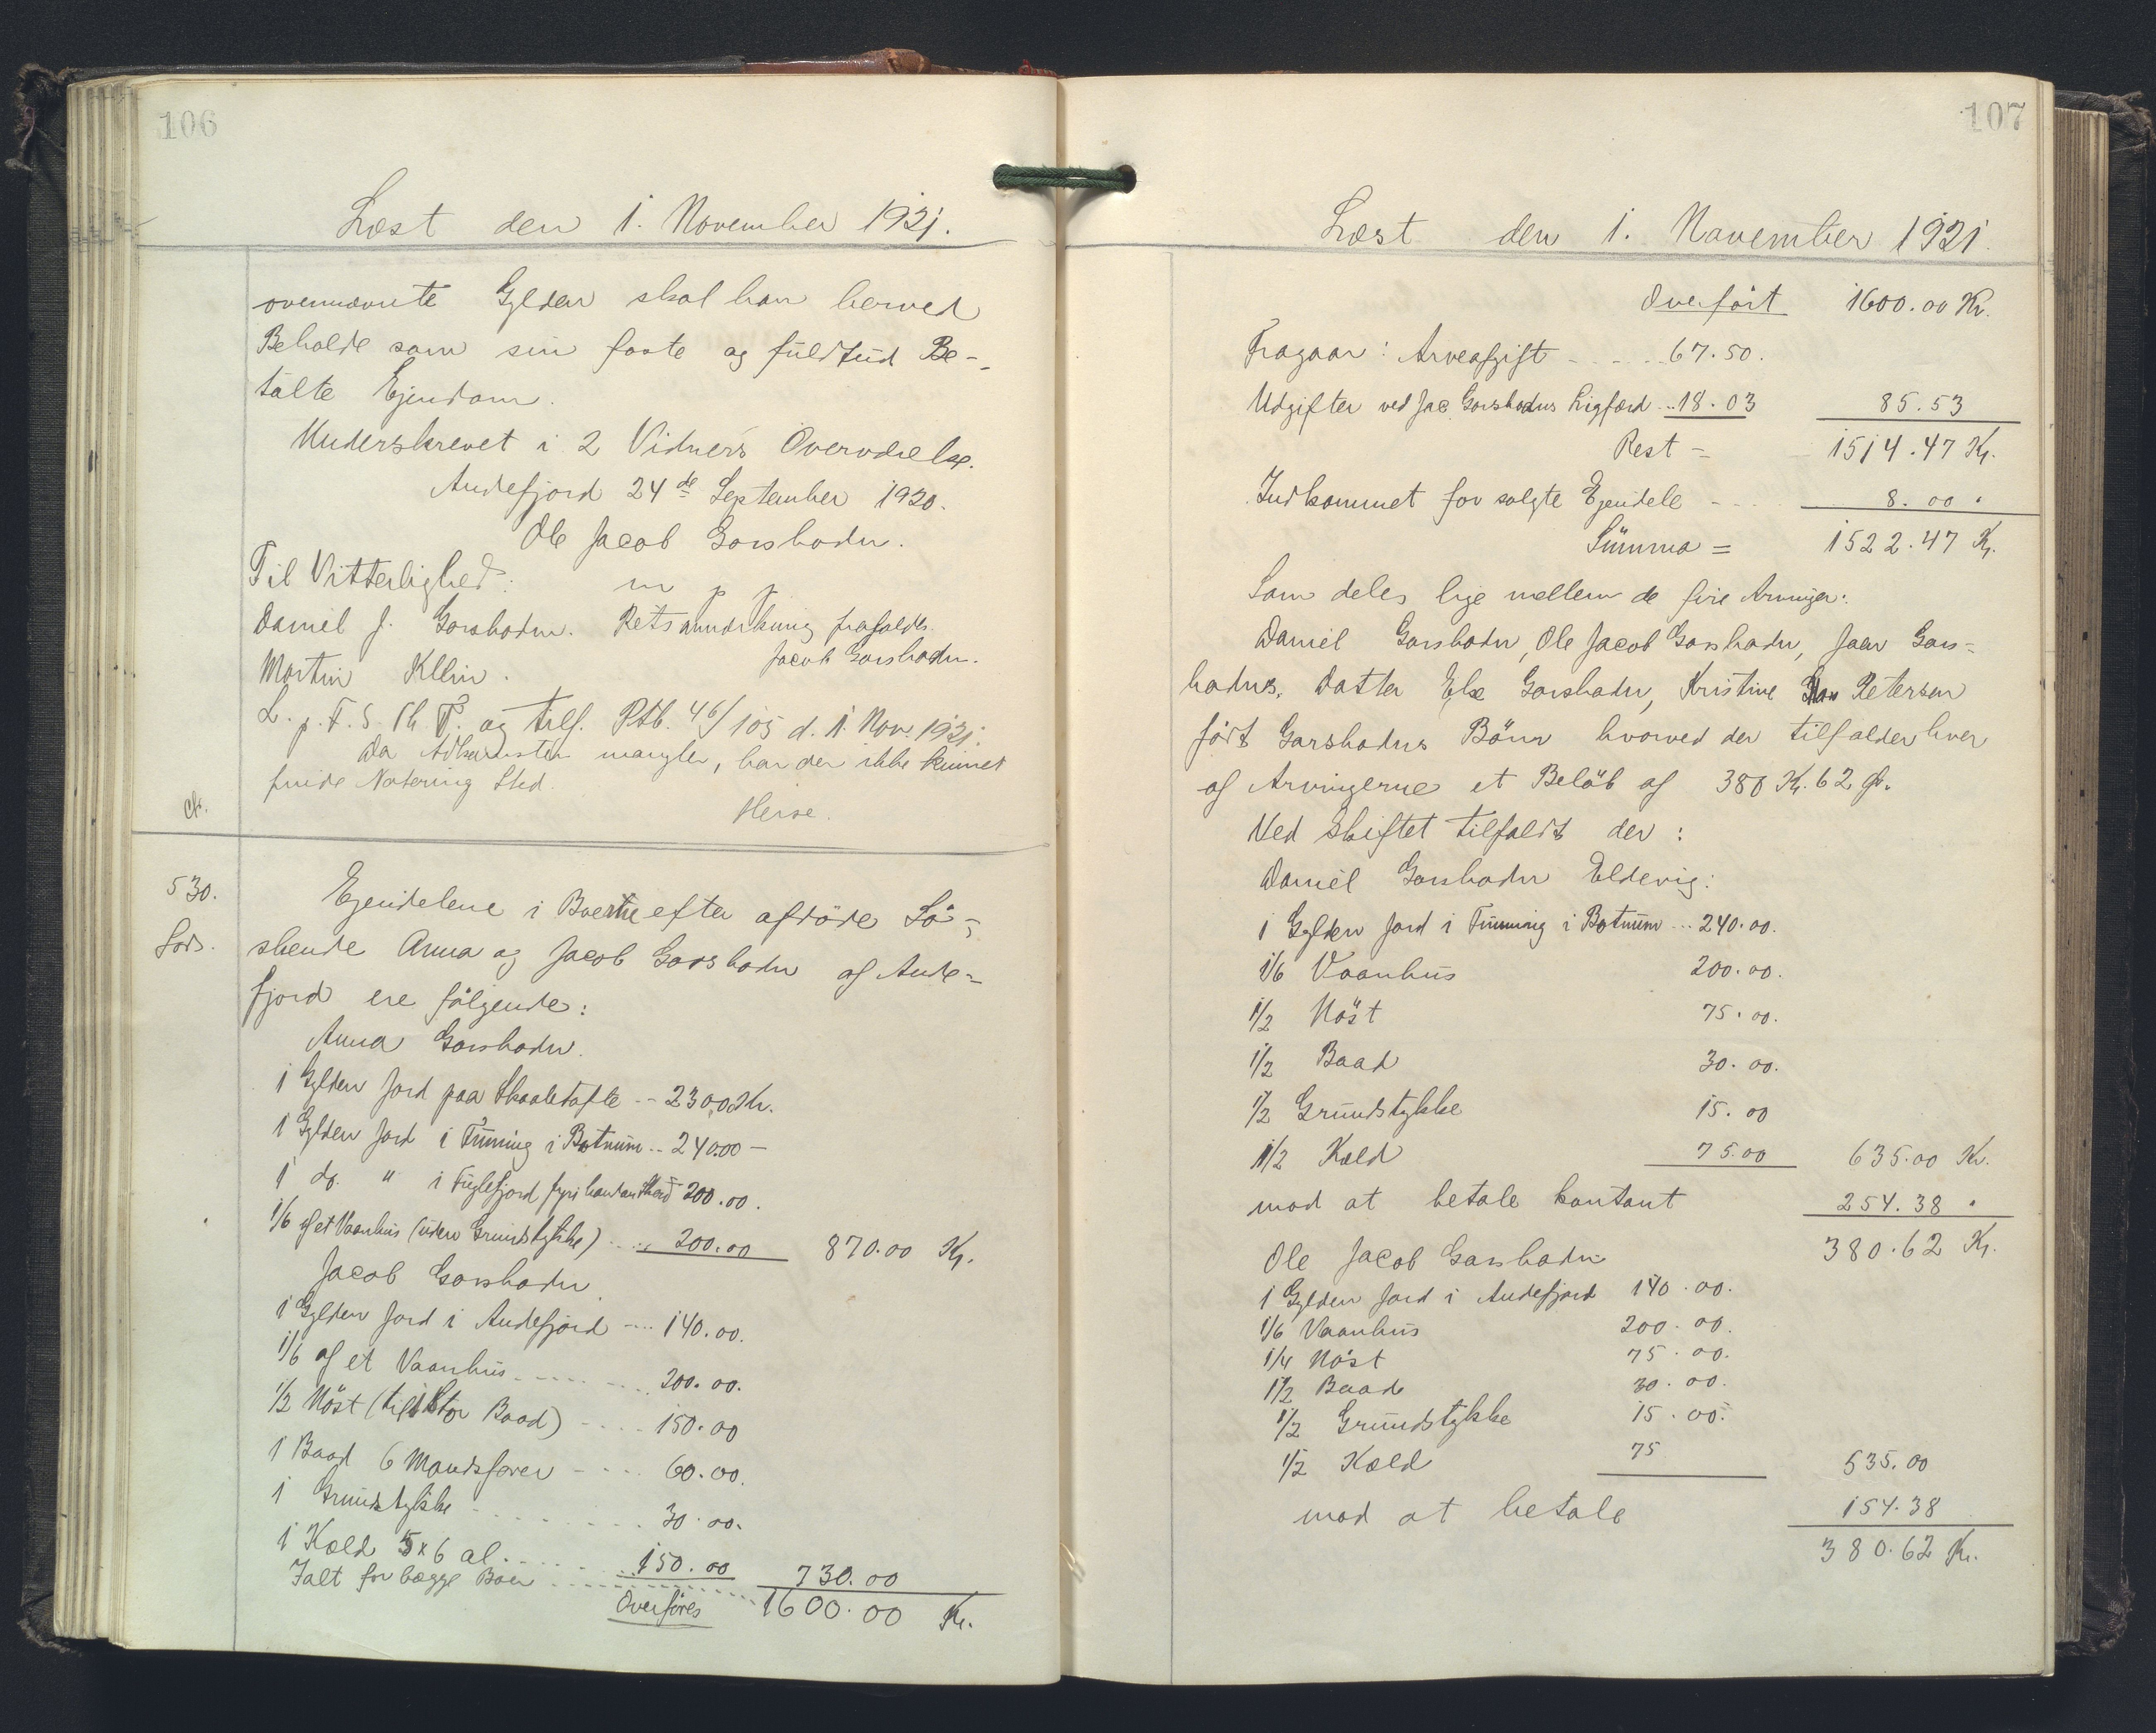 106
Læst den 1. November 1921.
ovennævnte Gylden skal han herved
Beholde som sin faste og fuldtud Be-
talte Ejendom.
Underskrevet i 2 Vidners Overværelse.
Andefjord 24de September 1920.
Ole Jacob Gærsbodn.
Til Vitterlighed: m p p
Daniel J. Garsbodn. Retsanmærkning frafaldes.
Martin Klein. Jacob Garsbodn.
L. p. F. S. Th T. og tilf. Ptb. 46/105 d. 1. Nov. 1921.
Da Adkomsten mangler, har der ikke kunnet
finde Notering Sted.
cfr. Heise.
530. Ejendelene i Boerne efter afdöde Sö-
skende Anna og Jacob Garsbodn af Ande-
fjord ere fölgende:
Anna Garsbodn.
1 Gylden Jord paa Skaaletofte -- 230.00 Kr.
1 Gylden Jord i Tunning i Botnum .. 240.00 —
1 do. " i Fuglefjord 200.00.
1/6 af et Vaanhus (uden Grundstykke) .... 200.00 870.00 Kr.
Jacob Garsbodn.
1 Gylden Jord i Andefjord .... 140.00.
1/6 af et Vaanhus ........ 200.00.
1/2 Nöst (til Stor Baad) .... 150.00
1 Baad 6 Mandsfarer .... 60.00.
1 Grundstykke ........ 30.00.
1 Kæld 5x6 al. ..... 150.00 730.00
Ialt for begge Boer ........ 1600.00 Kr.
Overföres
107
Læst den 1. November 1921.
Overfört 1600.00 Kr.
Fragaar: Arveafgift .... 67.50.
Udgifter ved Jac. Garsbodns Ligfærd .. 18.03 85.53
Rest = 1514.47 Kr.
Indkommet for solgte Ejendele .... 8.00 "
Summa = 1522.47 Kr.
Som deles lige mellem de fire Arvinger:
Daniel Garsbodn, Ole Jacob Garsbodn, Joen Gars-
bodns. Datter Else Garsbodn, Kristine Petersen
födt Garsbodns Börn hvorved der tilfalder hver
af Arvingerne et Belöb af 380 Kr. 62 Ör.
Ved Skiftet tilfaldt der:
Daniel Garsbodn Eldevig:
1 Gylden Jord i Tunning i Botnum ... 240.00.
1/6 Vaanhus 200.00.
1/2 Nöst 75.00.
1/2 Baad 30.00.
1/2 Grundstykke 15.00
1/2 Kæld 75.00 635.00 Kr.
mod at betale kontant 254.38 "
380.62 Kr.
Ole Jacob Garsbodn
1 Gylden Jord i Andefjord 140.00.
1/6 Vaanhus 200.00.
1/4 Nöst 75.00.
1/2 Baad 30.00.
1/2 Grundstykke 15.00.
1/2 Kæld 75 535.00
mod at betale 154.38
380.62 Kr.